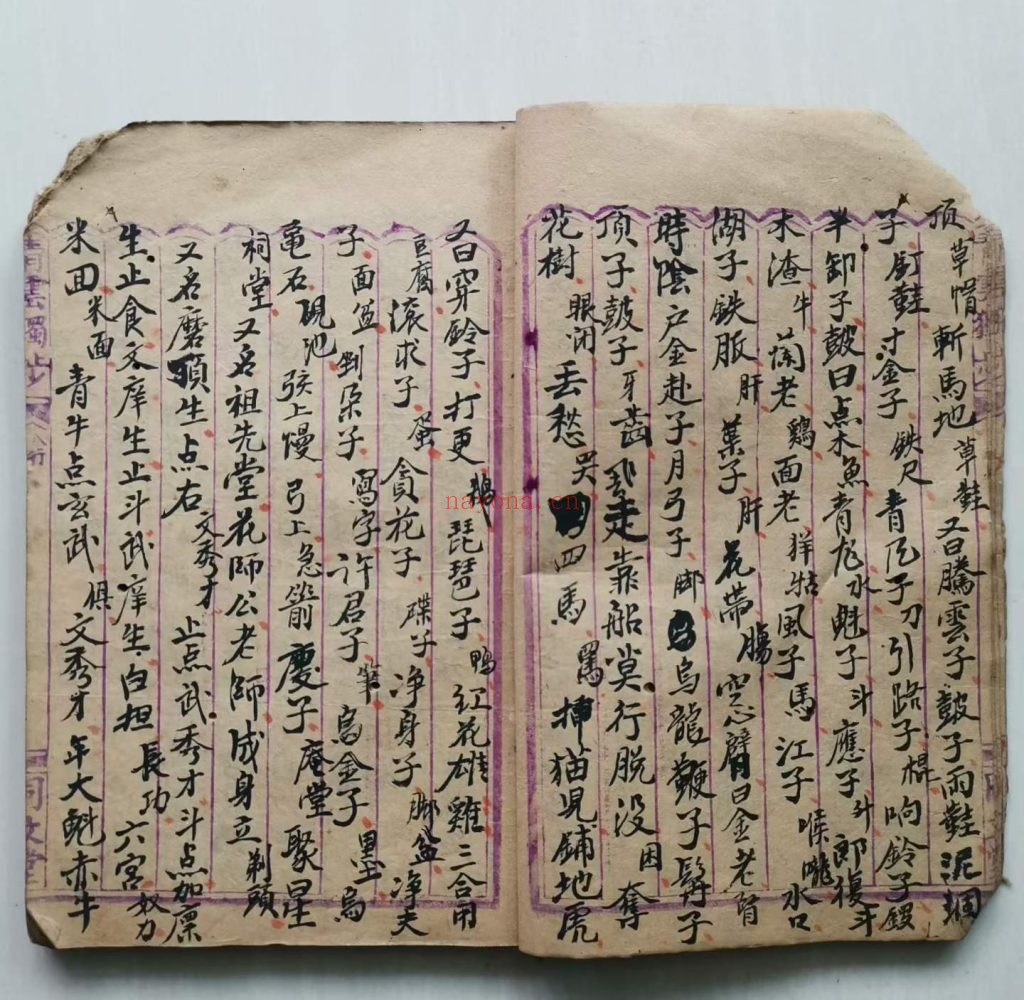 顶草帽斬馬地草鞋又曰騰雲子皷子雨鞋泥
子釘鞋寸金子鉄尺青瓦子刀引路子棍响鈴子鎪
半卸子皷曰点木魚青龙水魁子斗應子斗郎複斗
木渣牛蘭老鷄面老羊牯風子馬江子喉嚨水口
湖子鉄脤肝葉子肝花带腸空心臂曰金老官
時陰户金赴子月弓子脚烏龍鞭子鬍子
頂子皷子牙齒走靠船莫行脱没困奪
花樹眼闭丢愁哭四馬罵挿猫児鋪地虎
又曰穿鈴子打更鵝琵琶子鴨红花雄雞三合用
豆腐滚求子蛋貪花子碟子净身子脚盆净夫
子面盆剉朵子寫字許君子筆烏金子墨烏
亀石硯池弦上慢弓上急箭慶子庵堂聚星
祠堂又名祖先堂花師公老師成身立剃頭
又名磨頂生点右文秀才止点武秀才斗点加禀
生止食文庠生止斗武庠生白担長功六宫奴力
米田米面青牛点玄武俱文秀才年大魁赤牛
青雲獨步
同文堂
navona.cn